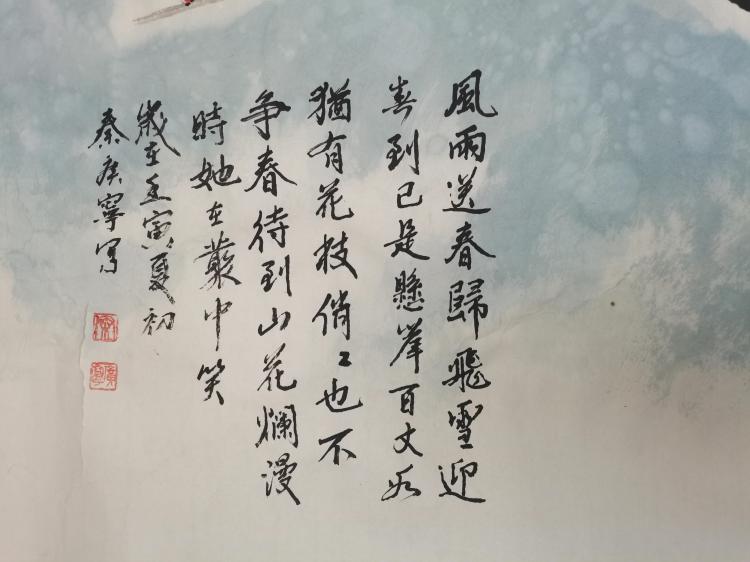 風雨送春歸飛雪迎
春到已是懸崖百丈冰
猶有花枝俏〻也不
争春待到山花爛漫
時她在叢中笑
歲在壬寅夏初
秦寧写